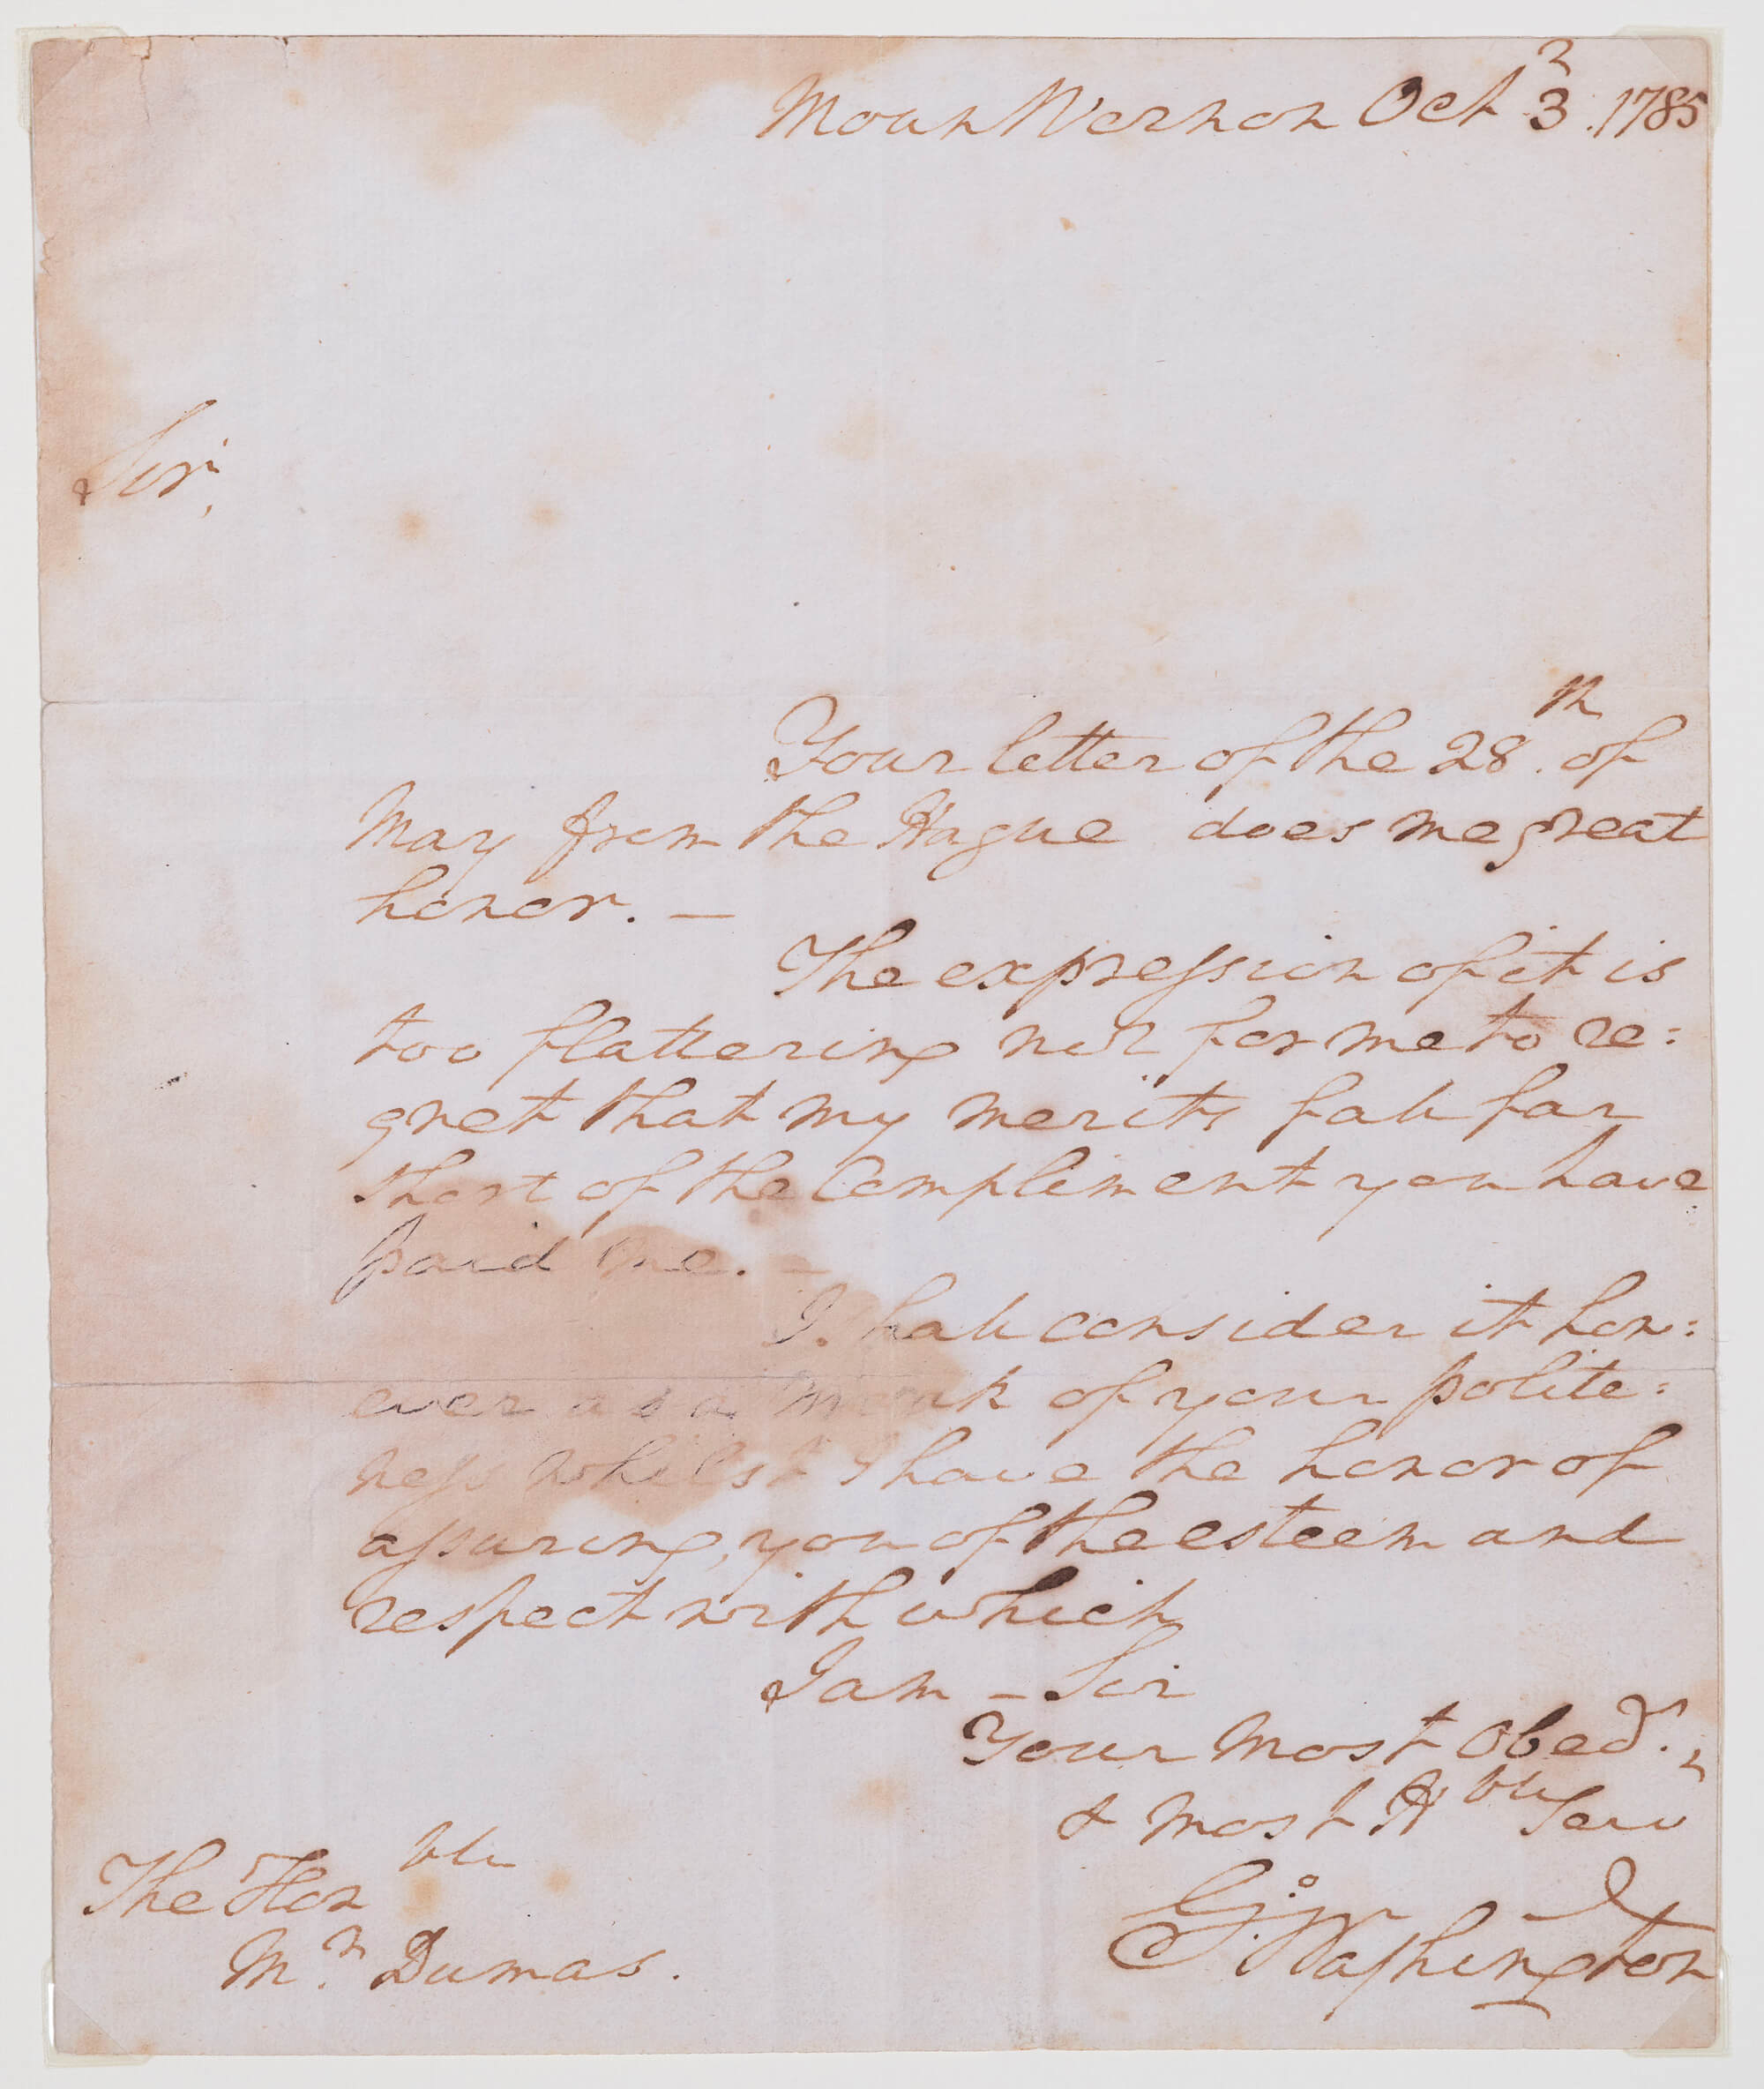 Mount Vernon Oct 3 1785
Sir,
Your letter of the 28th. of
May from the Hague does me great
honor. —
The expression of it is
too flattering not for me to re:
gret that my merits fall far
short of the Compliment you have
paid me. —
I shall consider it how:
ever as a mark of your polite:
ness whilst I have the honor of
assuring, you of the esteem and
respect with which
I am — Sir
Your most Obed.
& most Hble Serv
Go: Washington
The Honble
Mr. Dumas.